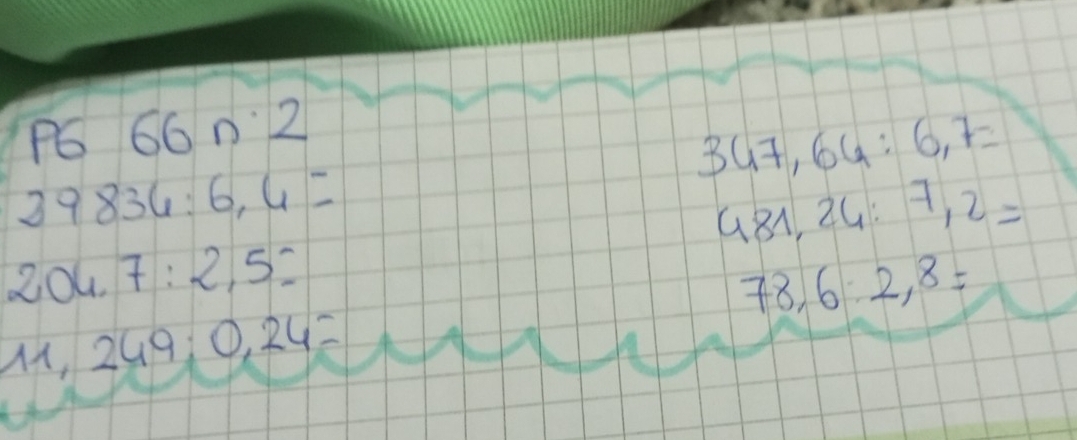 PG 66 n. 2
39834:6,4=
204,7:2,5=
11,249:0,24=
347,64:6,7=
481,24:7,2=
78,6:2,8=